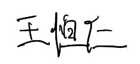 王恒仁